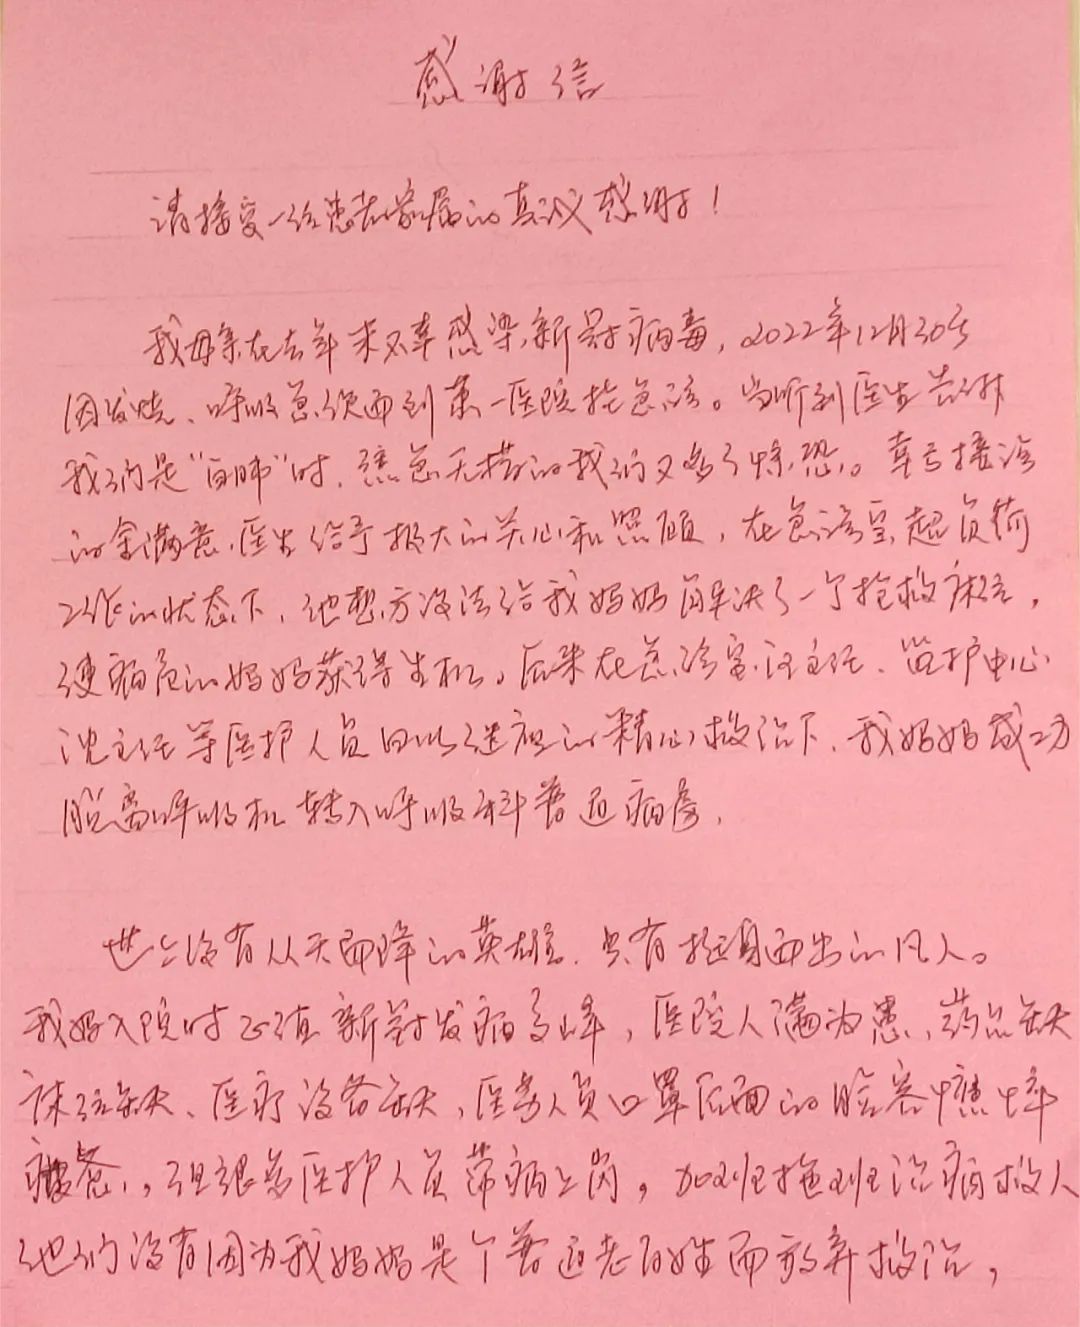 感谢信
请接受一位患者家属的真诚感谢！
我母亲在去年末不幸感染新冠病毒，2022年12月30号
因发烧、呼吸急促而到某一医院挂急诊。当听到医生告诉
我们是“白肺”时，焦急无措的我们又多了惊恐。幸亏接诊
的余满意医生给予极大的关心和照顾，在急诊室超负荷
工作的状态下，他想方设法给我妈妈解决了一个抢救床位，
使病危的妈妈获得生机。后来在急诊室汪主任、监护中心
沈主任等医护人员日以继夜的精心救治下，我妈妈成功
脱离呼吸机转入呼吸科普通病房。
世上没有从天而降的英雄，只有挺身而出的凡人。
我妈入院时正值新冠发病高峰，医院人满为患，药品缺
床位缺、医疗设备缺，医务人员口罩后面的脸容憔悴
疲惫，但很多医护人员带病上岗，加班拖班治病救人
他们没有因为我妈妈是个普通老百姓而放弃救治，